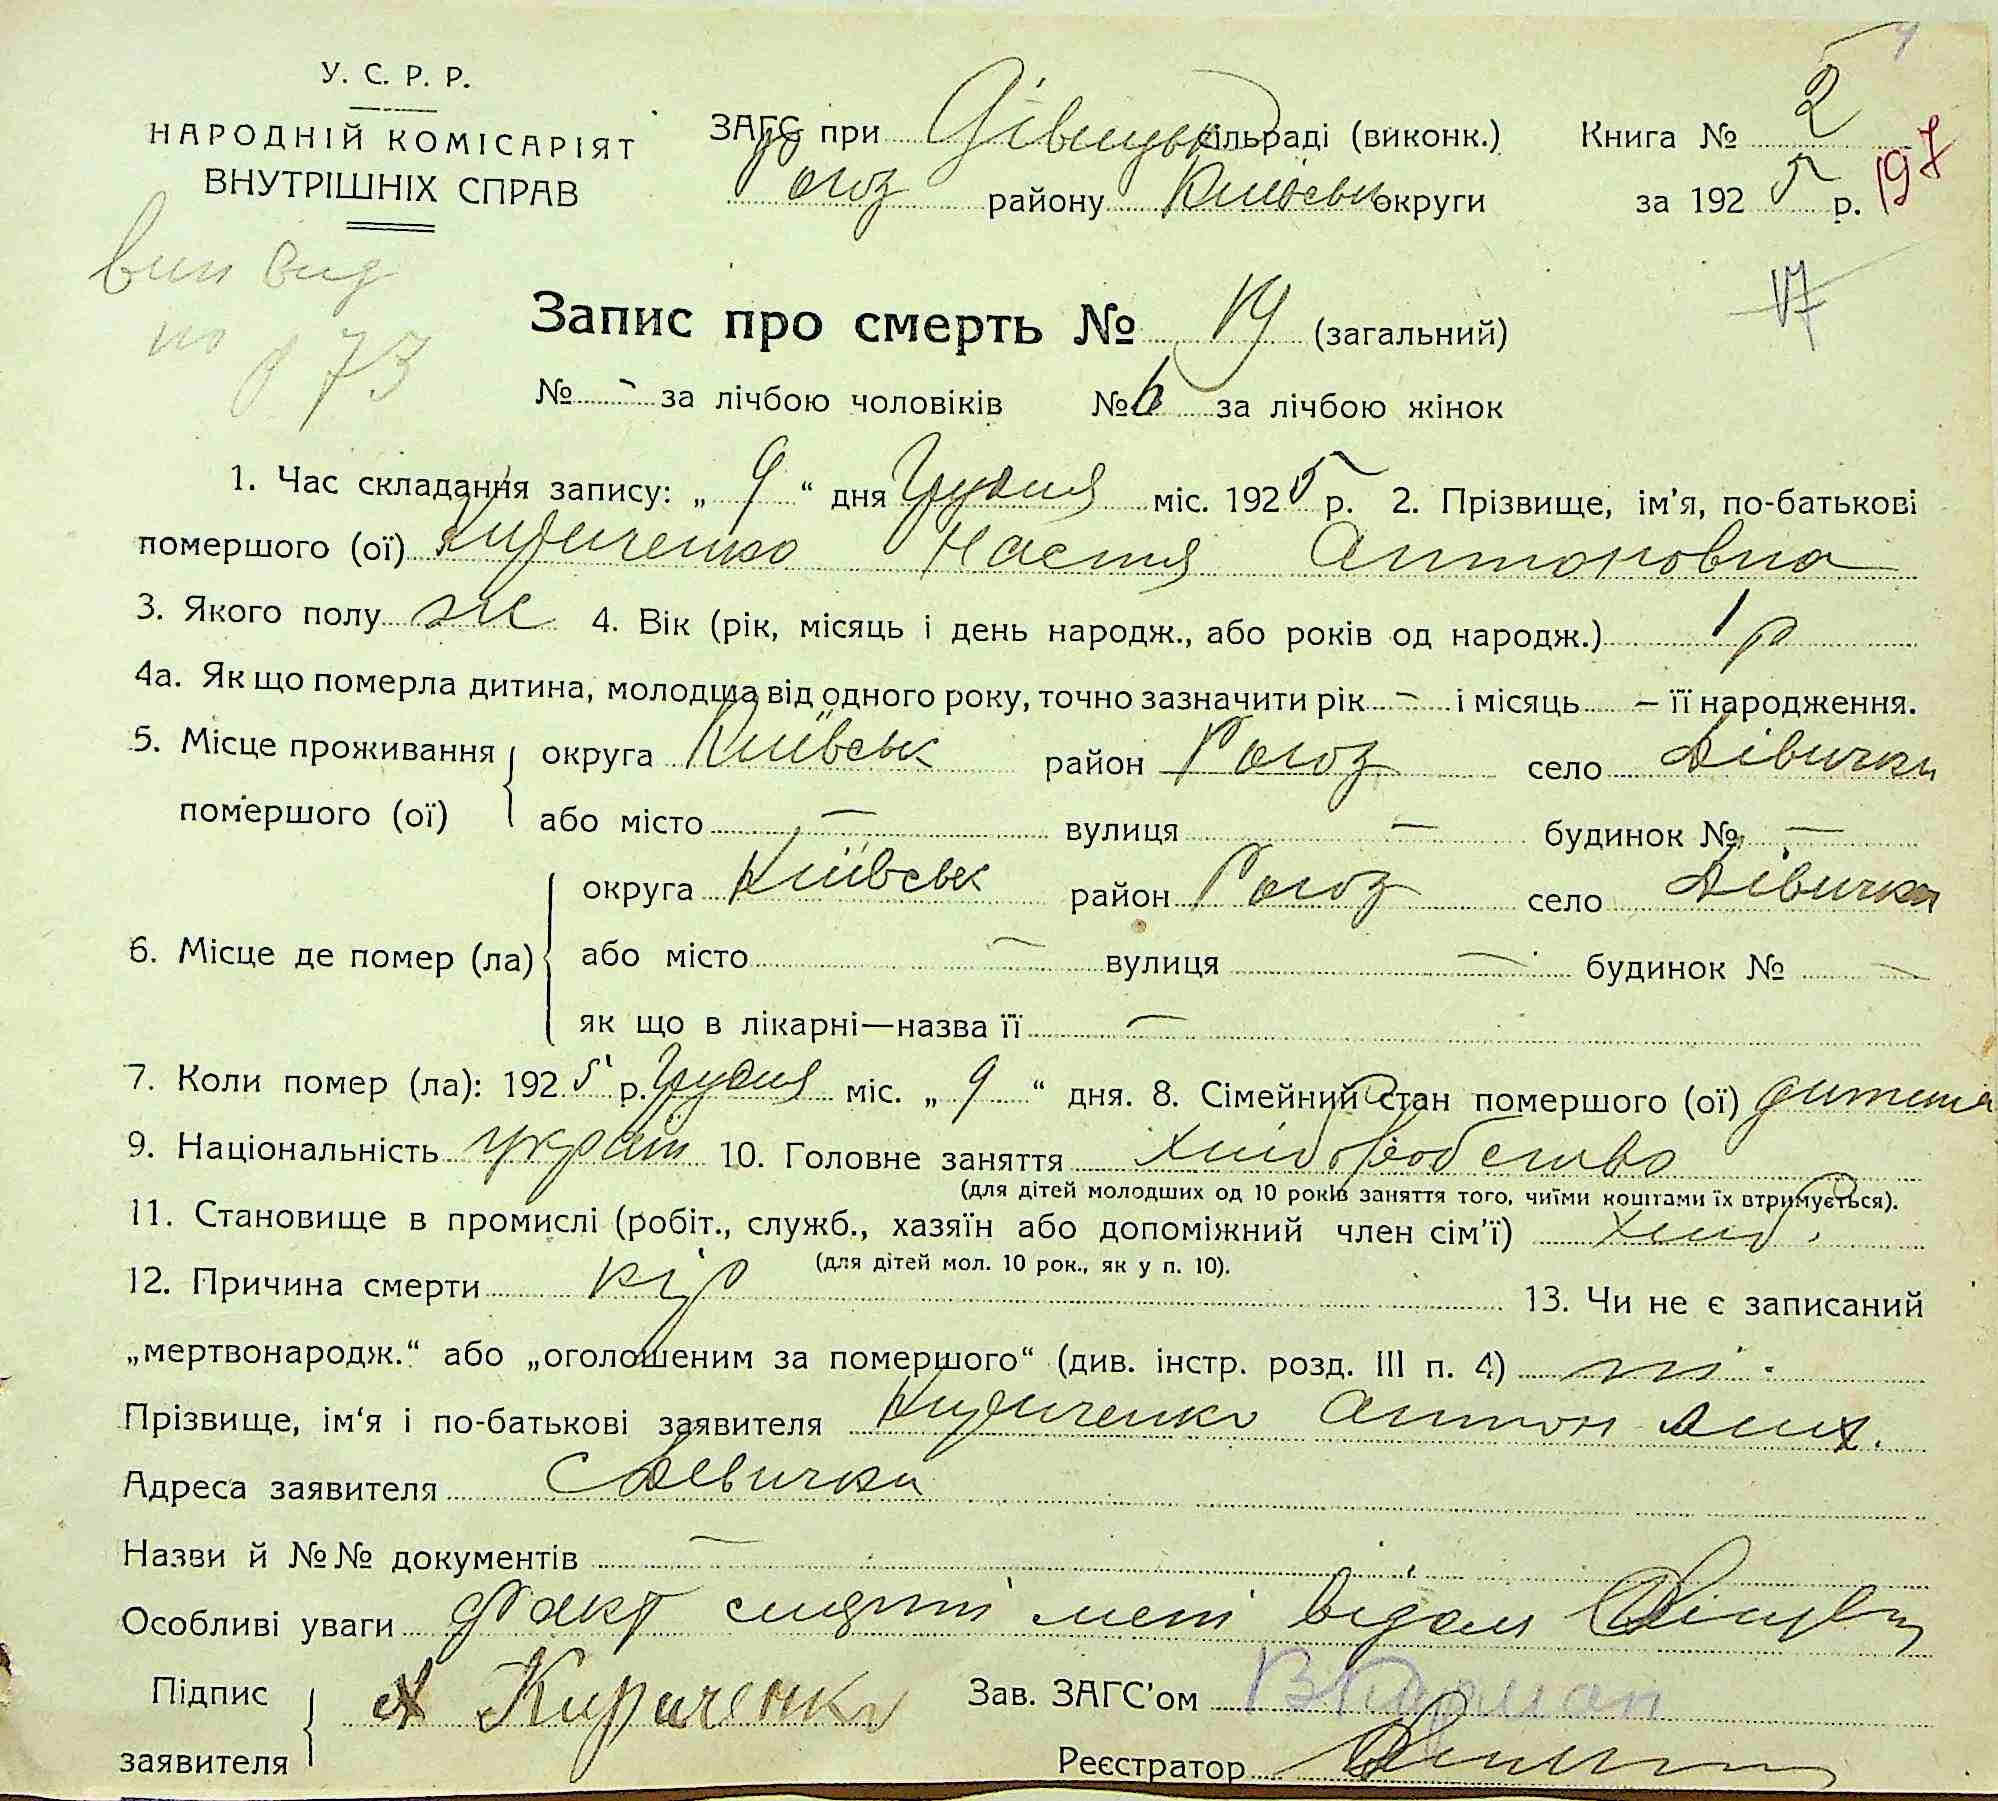 У. С. Р. Р.
НАРОДНІЙ КОМІСАРІЯТ
ВНУТРІШНІХ СПРАВ
ЗАГС при Дівицьк сільраді (виконк.) Книга № 2
Рогоз району Київськ округи за 1925 р. 197
вип вид
73
17
Запис про смерть № 19 (загальний)
№ - за лічбою чоловіків № 6 за лічбою жінок
1. Час складання запису: „ 9 “ дня Грудня міс. 1925 р. 2. Прізвище, ім'я, по-батькові
помершого (ої) Кириченко Настя Антоновна
3. Якого полу ж 4. Вік (рік, місяць і день народж., або років од народж.) 1 р
4а. Як що померла дитина, молодша від одного року, точно зазначити рік – і місяць – її народження.
5. Місце проживання помершого (ої) округа Київськ район Рогоз село Дівички
або місто — вулиця — будинок № —
6. Місце де помер (ла) округа Київськ район Рогоз село Дівички
або місто — вулиця — будинок № —
як що в лікарні—назва її —
7. Коли помер (ла): 1925 р. Грудня міс. „ 9 “ дня. 8. Сімейний стан помершого (ої) дитина
9. Національність україн 10. Головне заняття хліборобство
(для дітей молодших од 10 років заняття того, чиїми коштами їх втримується).
11. Становище в промислі (робіт., служб., хазяїн або допоміжний член сім'ї) хліб.
(для дітей мол. 10 рок., як у п. 10).
12. Причина смерти кір 13. Чи не є записаний
„мертвонародж.“ або „оголошеним за помершого“ (див. інстр. розд. III п. 4) ні.
Прізвище, ім'я і по-батькові заявителя Кириченко Антон Лих.
Адреса заявителя с Девички
Назви й №№ документів —
Особливі уваги факт смерти мені відом
Підпис заявителя А Кириченко Зав. ЗАГС'ом
Реєстратор